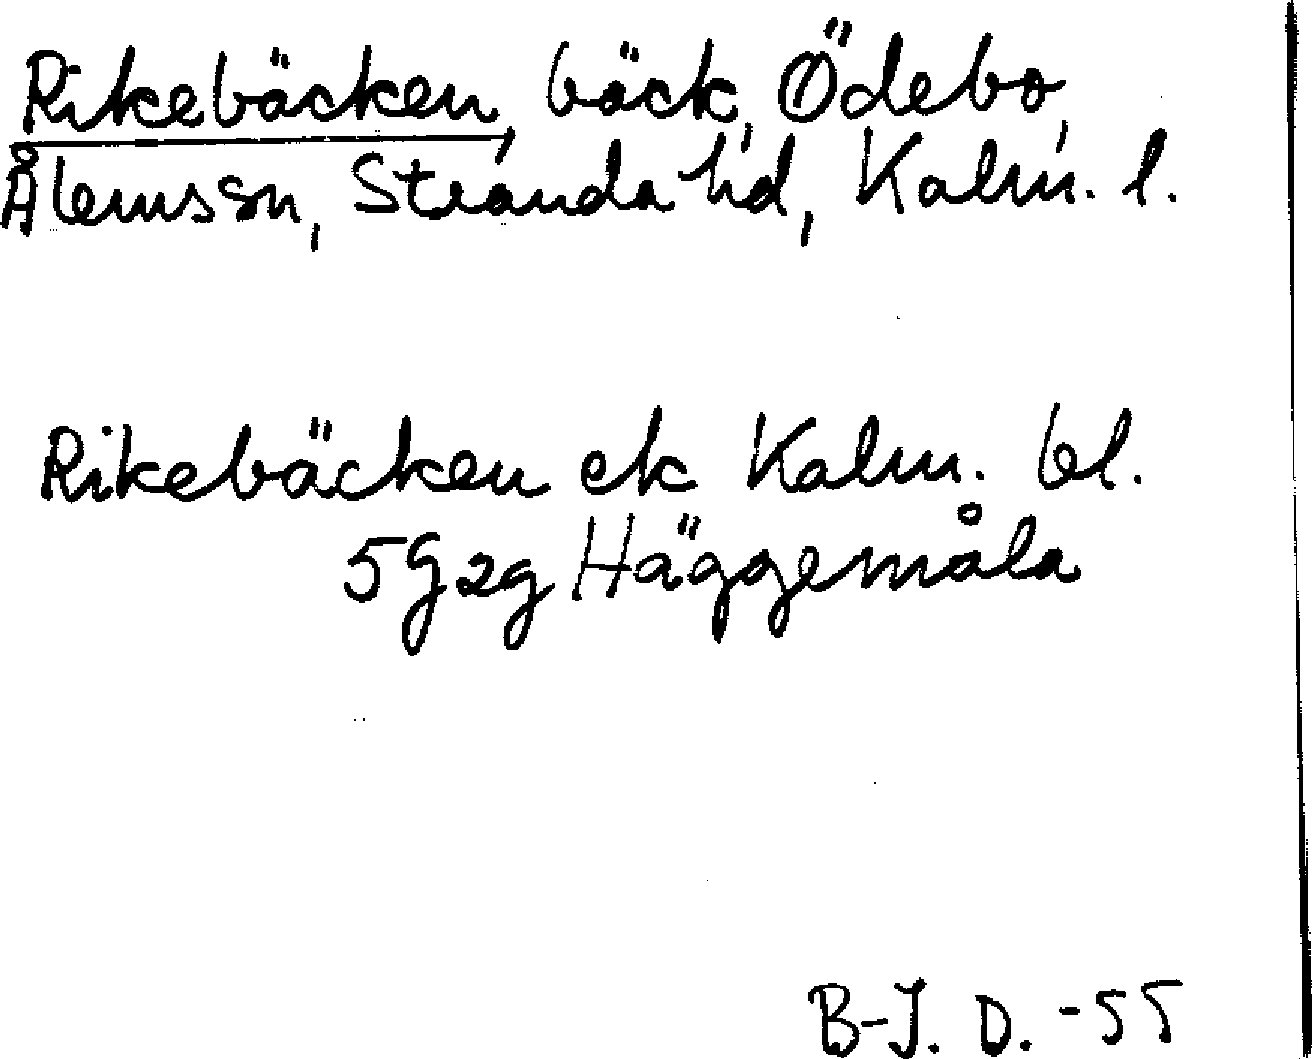 Rikebäcken, bäck, Ödebo,
Ålems sn, Stranda hd, Kalm. l.
Rikebäcken ek Kalm. bl.
5g2g Häggemåla
B-J. D. -55